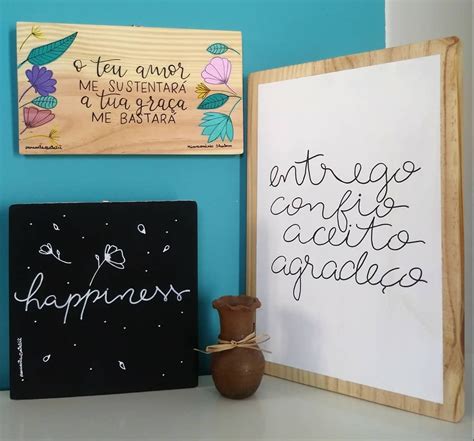 o teu amor
ME SUSTENTARÁ
a tua graça
ME BASTARÁ
happiness
entrego
confio
aceito
agradeço